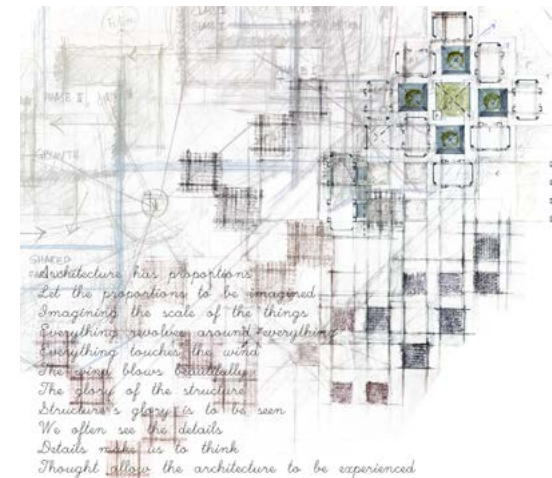 PHASE II
GROWTH
SHARED
Architecture has proportions
Let the proportions to be imagined
Imagining the scale of the things
Everything revolves around everything
Everything touches the wind
The wind blows beautifully
The glory of the structure
Structure's glory is to be seen
We often see the details
Details make us to think
Thought allow the architecture to be experienced